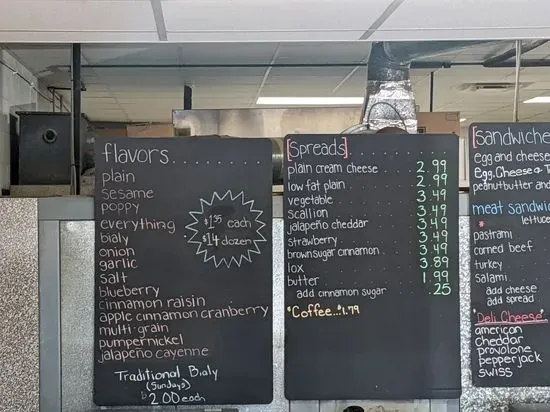 flavors
plain
sesame
poppy
everything
bialy
onion
garlic
salt
blueberry
cinnamon raisin
apple cinnamon cranberry
multi-grain
pumpernickel
jalapeño cayenne
$1.35 each
$14 dozen
Traditional Bialy
(Sundays)
$2.00 each
[Spreads]
plain cream cheese 2.99
low fat plain 2.99
vegetable 3.49
scallion 3.49
jalapeño cheddar 3.49
strawberry 3.49
brown sugar cinnamon 3.49
lox 3.89
butter 1.99
add cinnamon sugar .25
"Coffee..."1.79
[Sandwiche
egg and cheese
Egg, Cheese & T
peanut butter and
meat sandwic
lettuce
pastrami
corned beef
turkey
salami
add cheese
add spread
"Deli Cheese"
american
cheddar
provolone
pepperjack
swiss